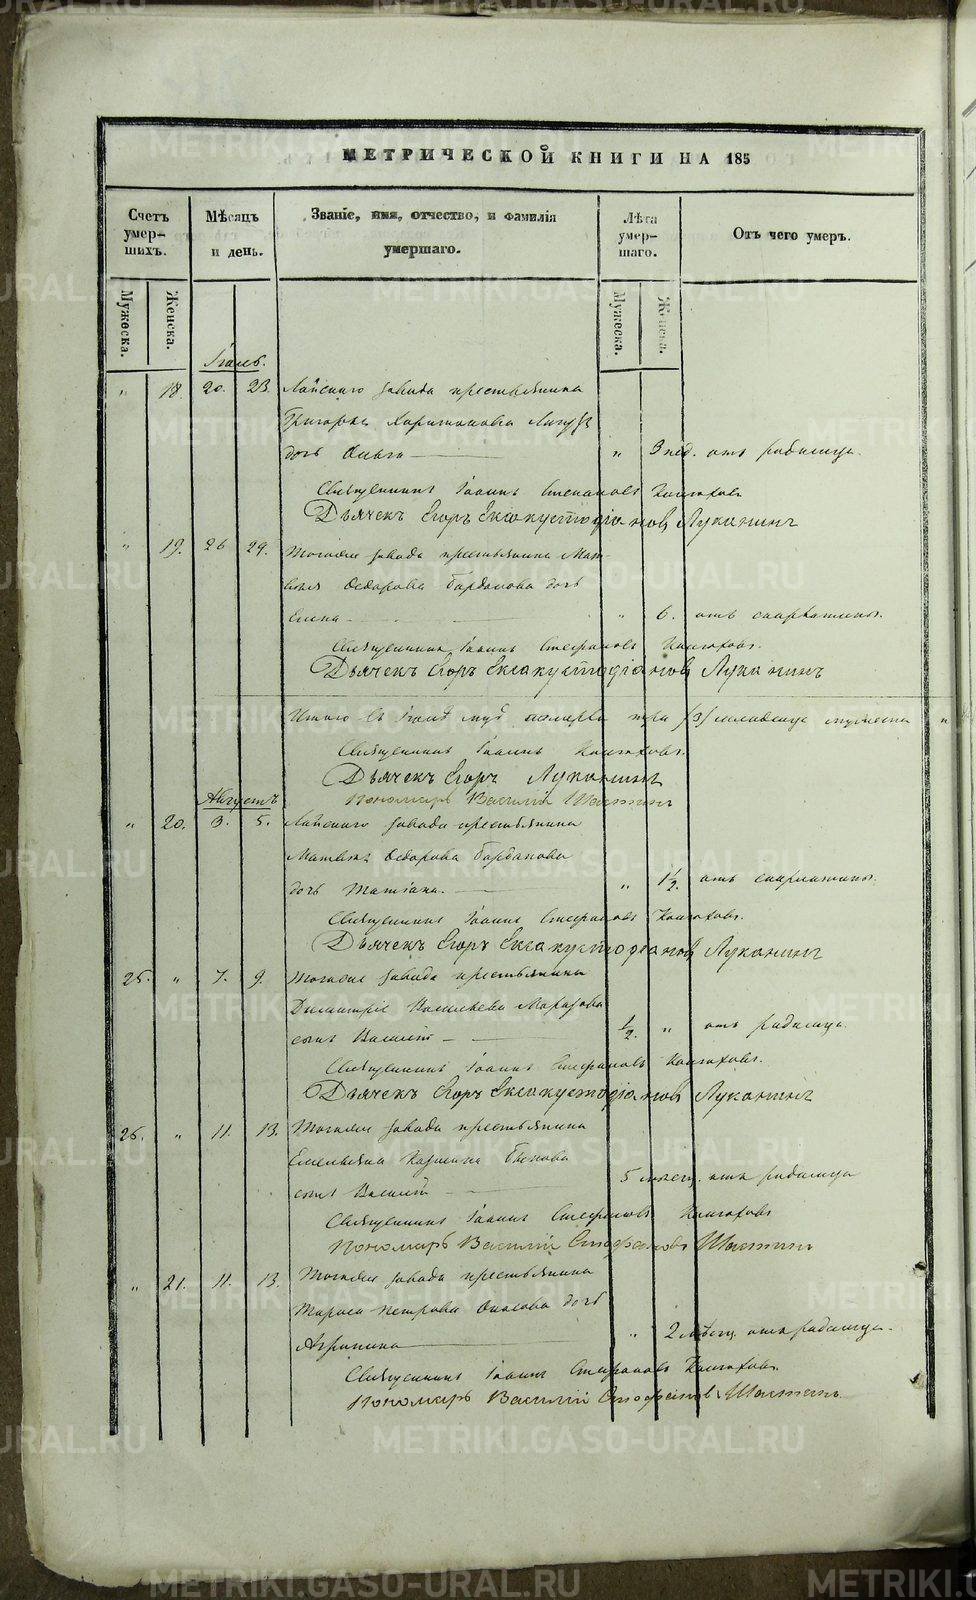 МЕТРИЧЕСКОЙ КНИГИ НА 185
Счетъ умер-шихъ.
Мѣсяцъ и день.
Званіе, имя, отчество, и фамилія умершаго.
Лѣта умер-шаго.
Отъ чего умеръ.
Мужеска.
Женска.
Мужеска.
Женска.
Іюль.
" 18. 20. 23. Лайскаго завода крестьянина
Григорья Харитонова
дочь Ольга " 3 нед. отъ родимца.
Священникъ Іоаннъ Стефановъ
Дьячекъ Егоръ Ексакустодіановъ Луканинъ
" 19. 26 29. Тогоже завода крестьянина Мат-
вѣя Ѳедорова дочь
Елена " 6. отъ скарлатины.
Священникъ Іоаннъ Стефановъ
Дьячекъ Егоръ Ексакустодіановъ Луканинъ
Итого въ Іюлѣ умерло три (3) "
Священникъ Іоаннъ
Дьячекъ Егоръ Луканинъ
Пономарь Василій Шастинъ
Августъ
" 20. 3. 5. Лайскаго завода крестьянина
Матвѣя Ѳедорова
дочь Татіана. " 1½. отъ скарлатины.
Священникъ Іоаннъ Стефановъ
Дьячекъ Егоръ Ексакустодіановъ Луканинъ
25. " 7. 9. Тогоже завода крестьянина
Димитрія Васильева
сынъ Василій ½. " отъ родимца.
Священникъ Іоаннъ Стефановъ
Дьячекъ Егоръ Ексакустодіановъ Луканинъ
26. " 11. 13. Тогоже завода крестьянина
Емельяна Козмина Быкова
сынъ Василій 5 отъ родимца
Священникъ Іоаннъ Стефановъ
Пономарь Василій Стефановъ Шастинъ
" 21. 11. 13. Тогоже завода крестьянина
Тараса Петрова дочь
Агрипина " 2 мѣсяц. отъ родимца.
Священникъ Іоаннъ Стефановъ
Пономарь Василій Стефановъ Шастинъ
METRIKI.GASO-URAL.RU